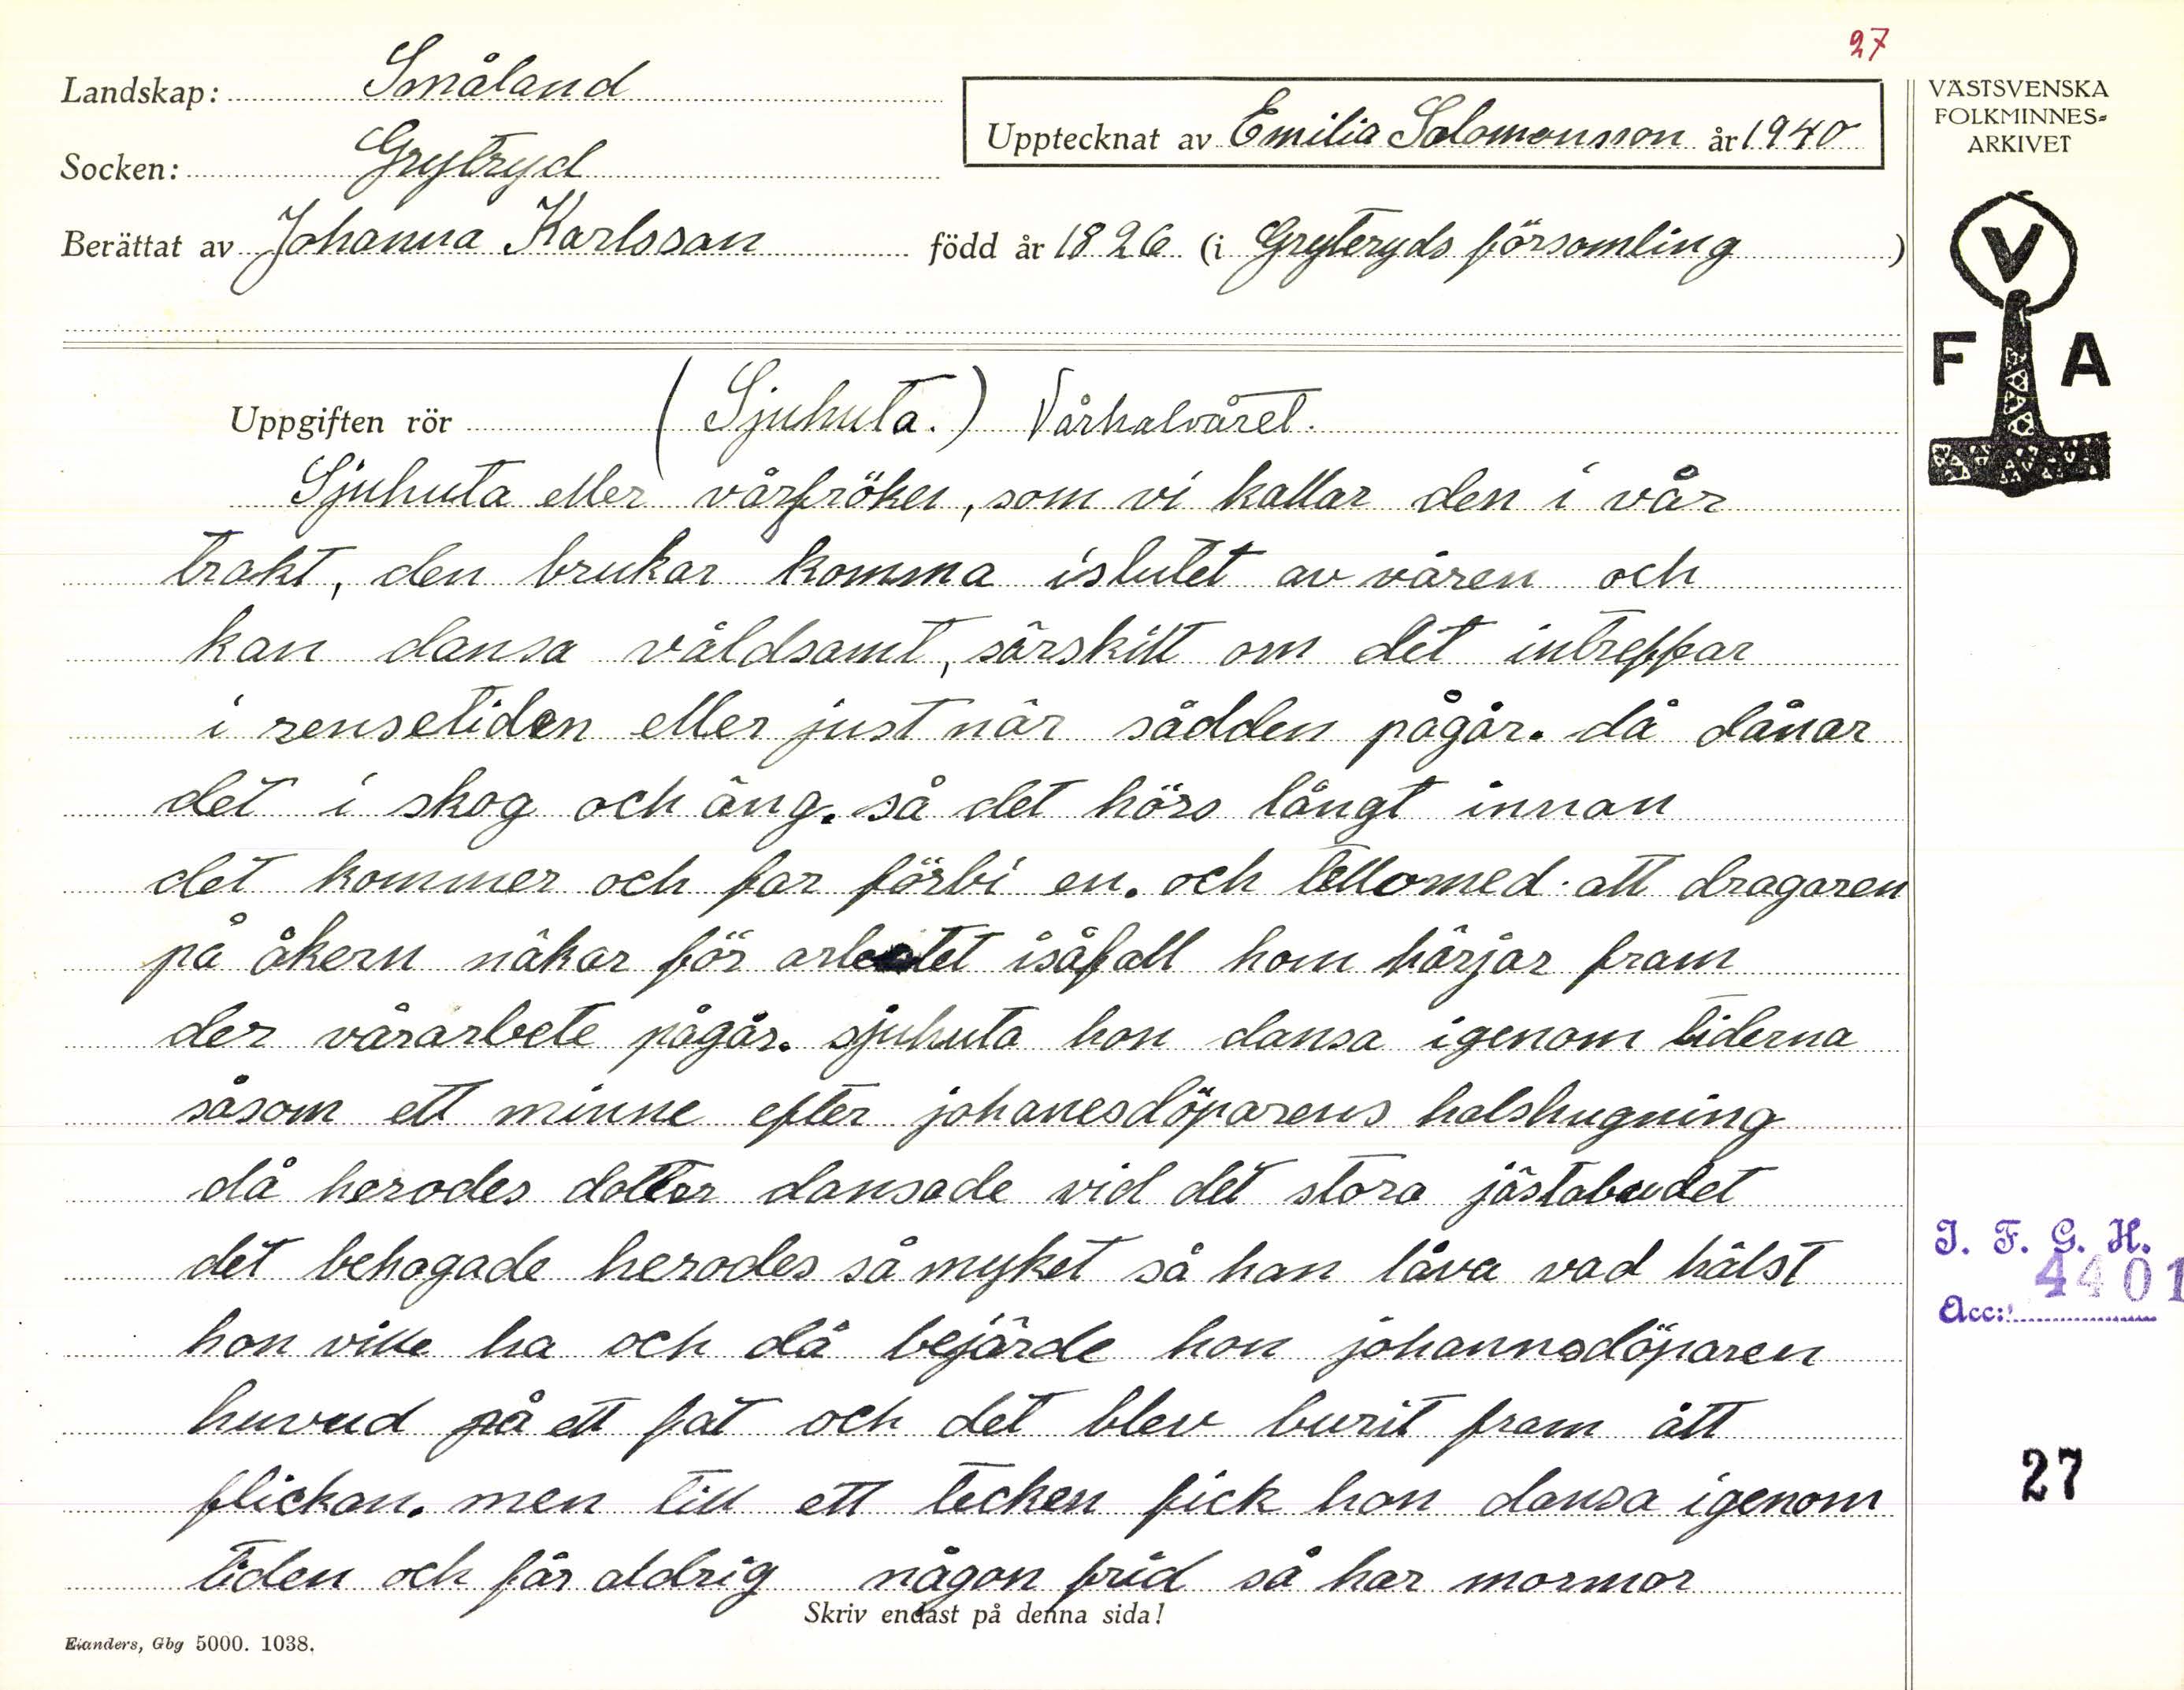 27
Landskap: Småland
Socken: Grytryd
Upptecknat av Emilia Solomonsson år 1940
Berättat av Johanna Karlsson född år 1826 (i Gryteryds församling)
VÄSTSVENSKA
FOLKMINNES-
ARKIVET
V
F A
Uppgiften rör (Sjuhuta.) Vårhalvåret.
Sjuhuta eller vårfröken, som vi kallar den i vår
trakt, den brukar komma islutet av våren och
kan dansa våldsamt, särskilt om det intreffar
i rensetiden eller just när sådden pågår. då dånar
det i skog och äng. så det hörs långt innan
det kommer och far förbi en. och tellomed. att dragaren
på åkern nåkar för arbetet isåfall hom härjar fram
der vårarbete pågår. sjuhuta hon dansa igenom tiderna
såsom ett minne efter johanesdöparens halshugning
då herodes dotter dansade vid det stora jästabudet
det behagade herodes så myket så han låva vad hälst
hon ville ha och då bejärde hon johannesdöparen
huvud på ett fat och det blev burit fram ått
flickan. men till ett tecken fick hon dansa igenom
tiden och får aldrig någon frid så har mormor
Skriv endast på denna sida!
Elanders, Gbg 5000. 1038.
I. F. G. H.
4401
Acc:
27